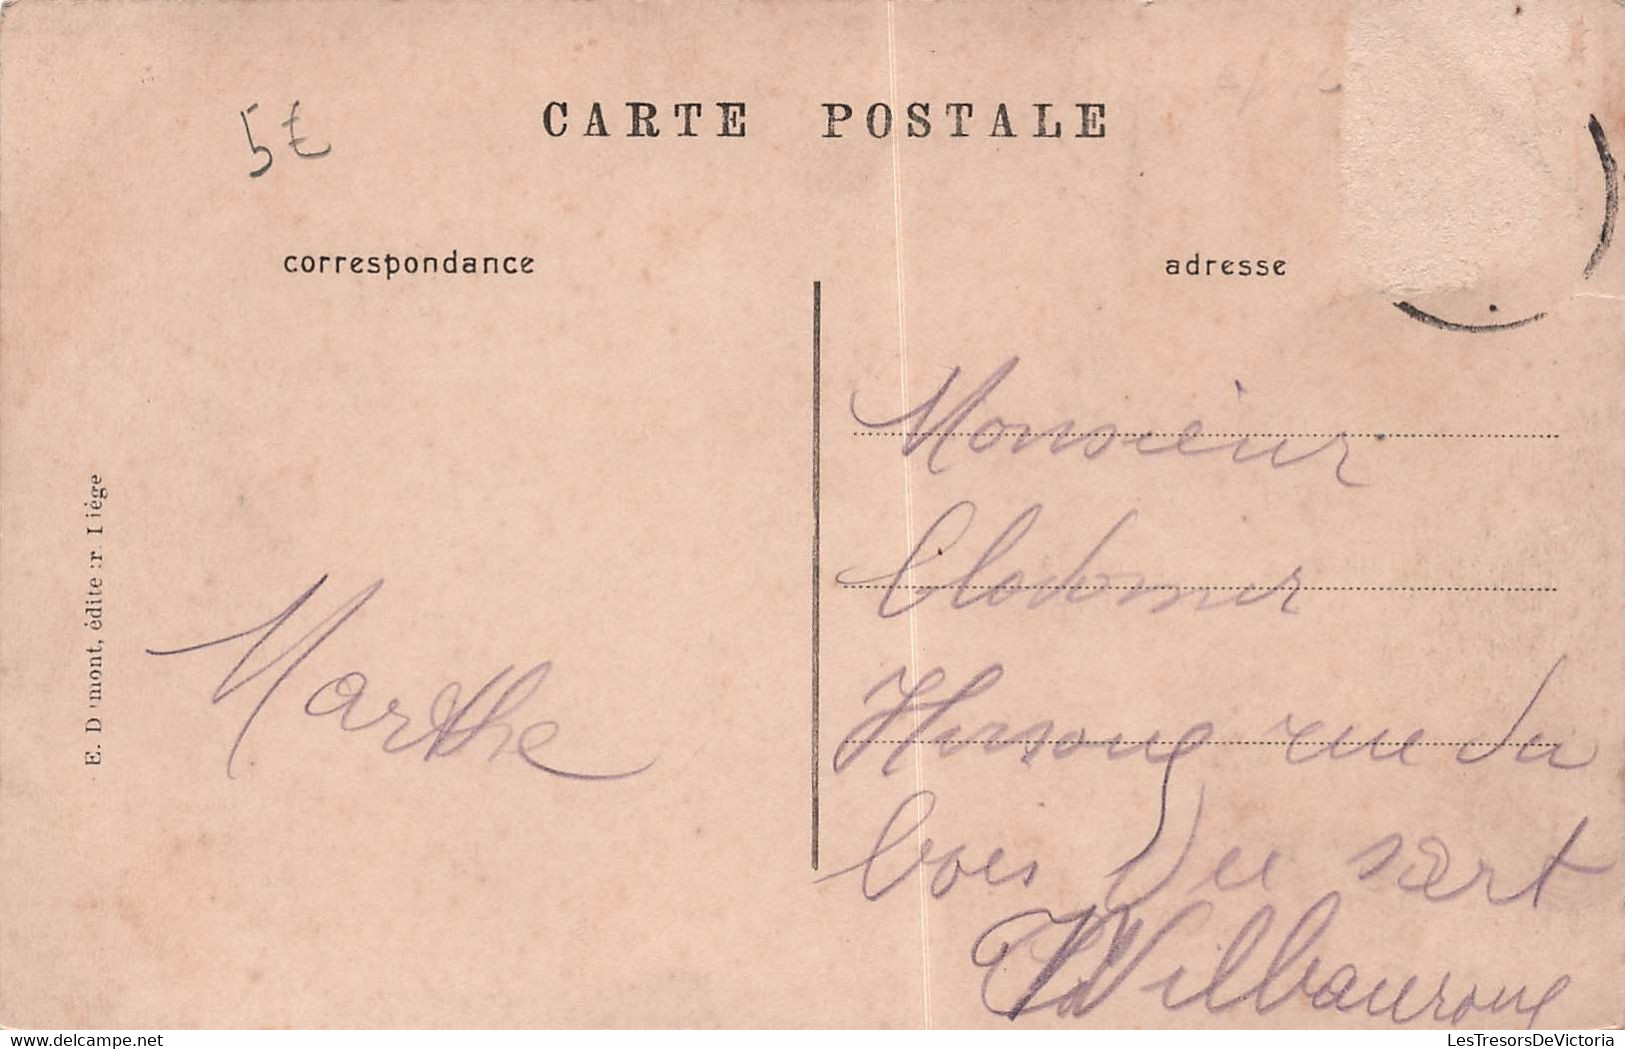 5€
CARTE POSTALE
correspondance
adresse
E. Dumont, éditeur. Liège
Marthe
Monsieur
Clodomir
rue du
bois du sart
www.delcampe.net
LesTresorsDeVictoria